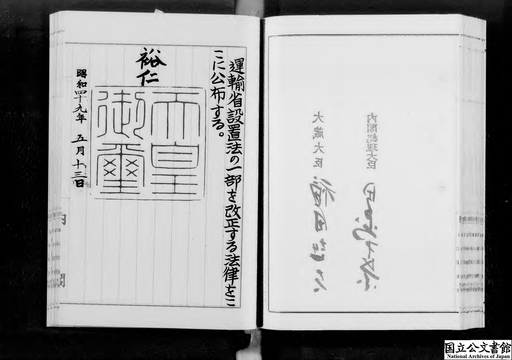 運輸省設置法の一部を改正する法律をこ
こに公布する。
裕仁
天皇
御璽
昭和四十九年 五月十三日
内閣
内閣総理大臣
大蔵大臣
国立公文書館
National Archives of Japan